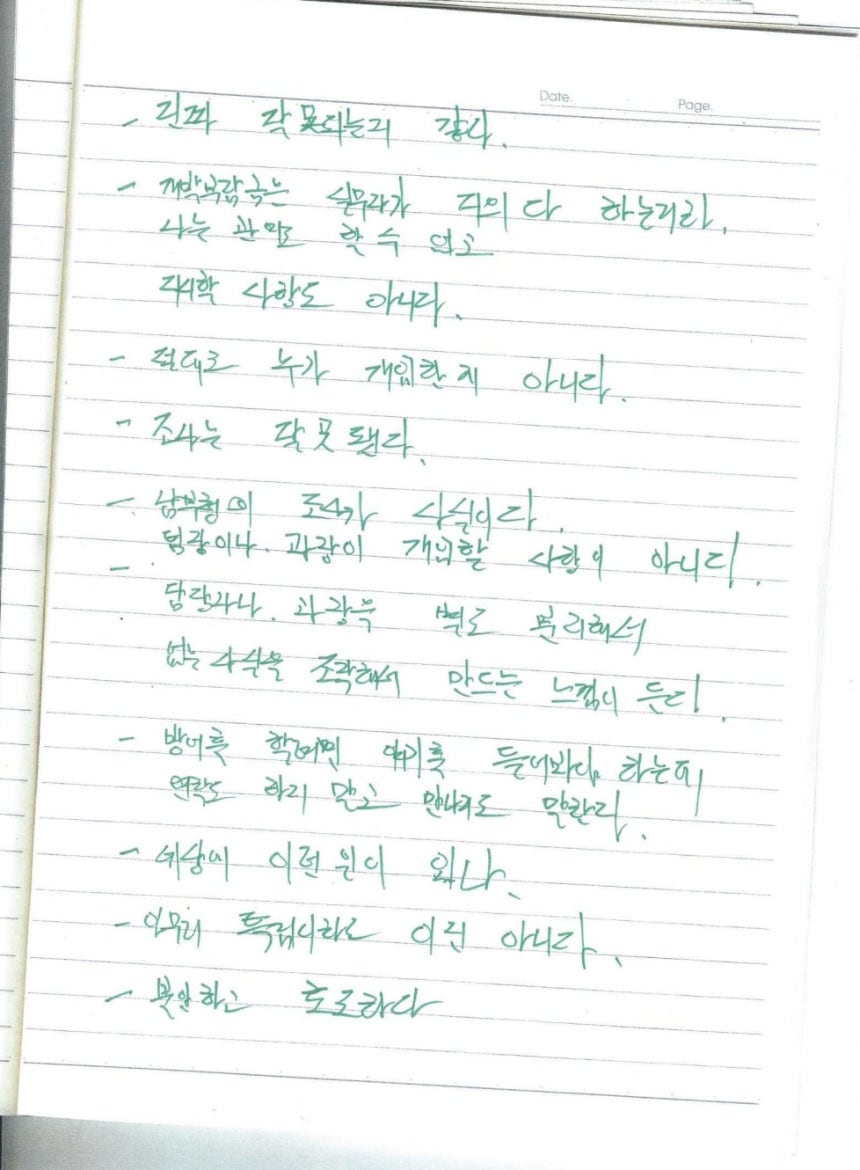 Date. Page.
- 진짜 잘못되는거 같다.
- 개발부담금은 실무자가 거의 다 하는거라,
나는 관여도 할 수 없고
지시할 사항도 아니다.
- 절대로 누가 개입한 게 아니다.
- 조사는 잘못됐다.
- 조사가 사실이다.
팀장이나. 과장이 개입할 사항이 아니다.
- 담당자나. 과장을 별도 분리해서
없는 사실을 조작해서 만드는 느낌이 든다.
- 방어를 할려면 얘기를 들어봐야 하는데
연락도 하지 말고 만나지도 말란다.
- 세상에 이런 일이 있나.
- 아무리 특검이라도 이건 아니다.
- 불안하고 초조하다